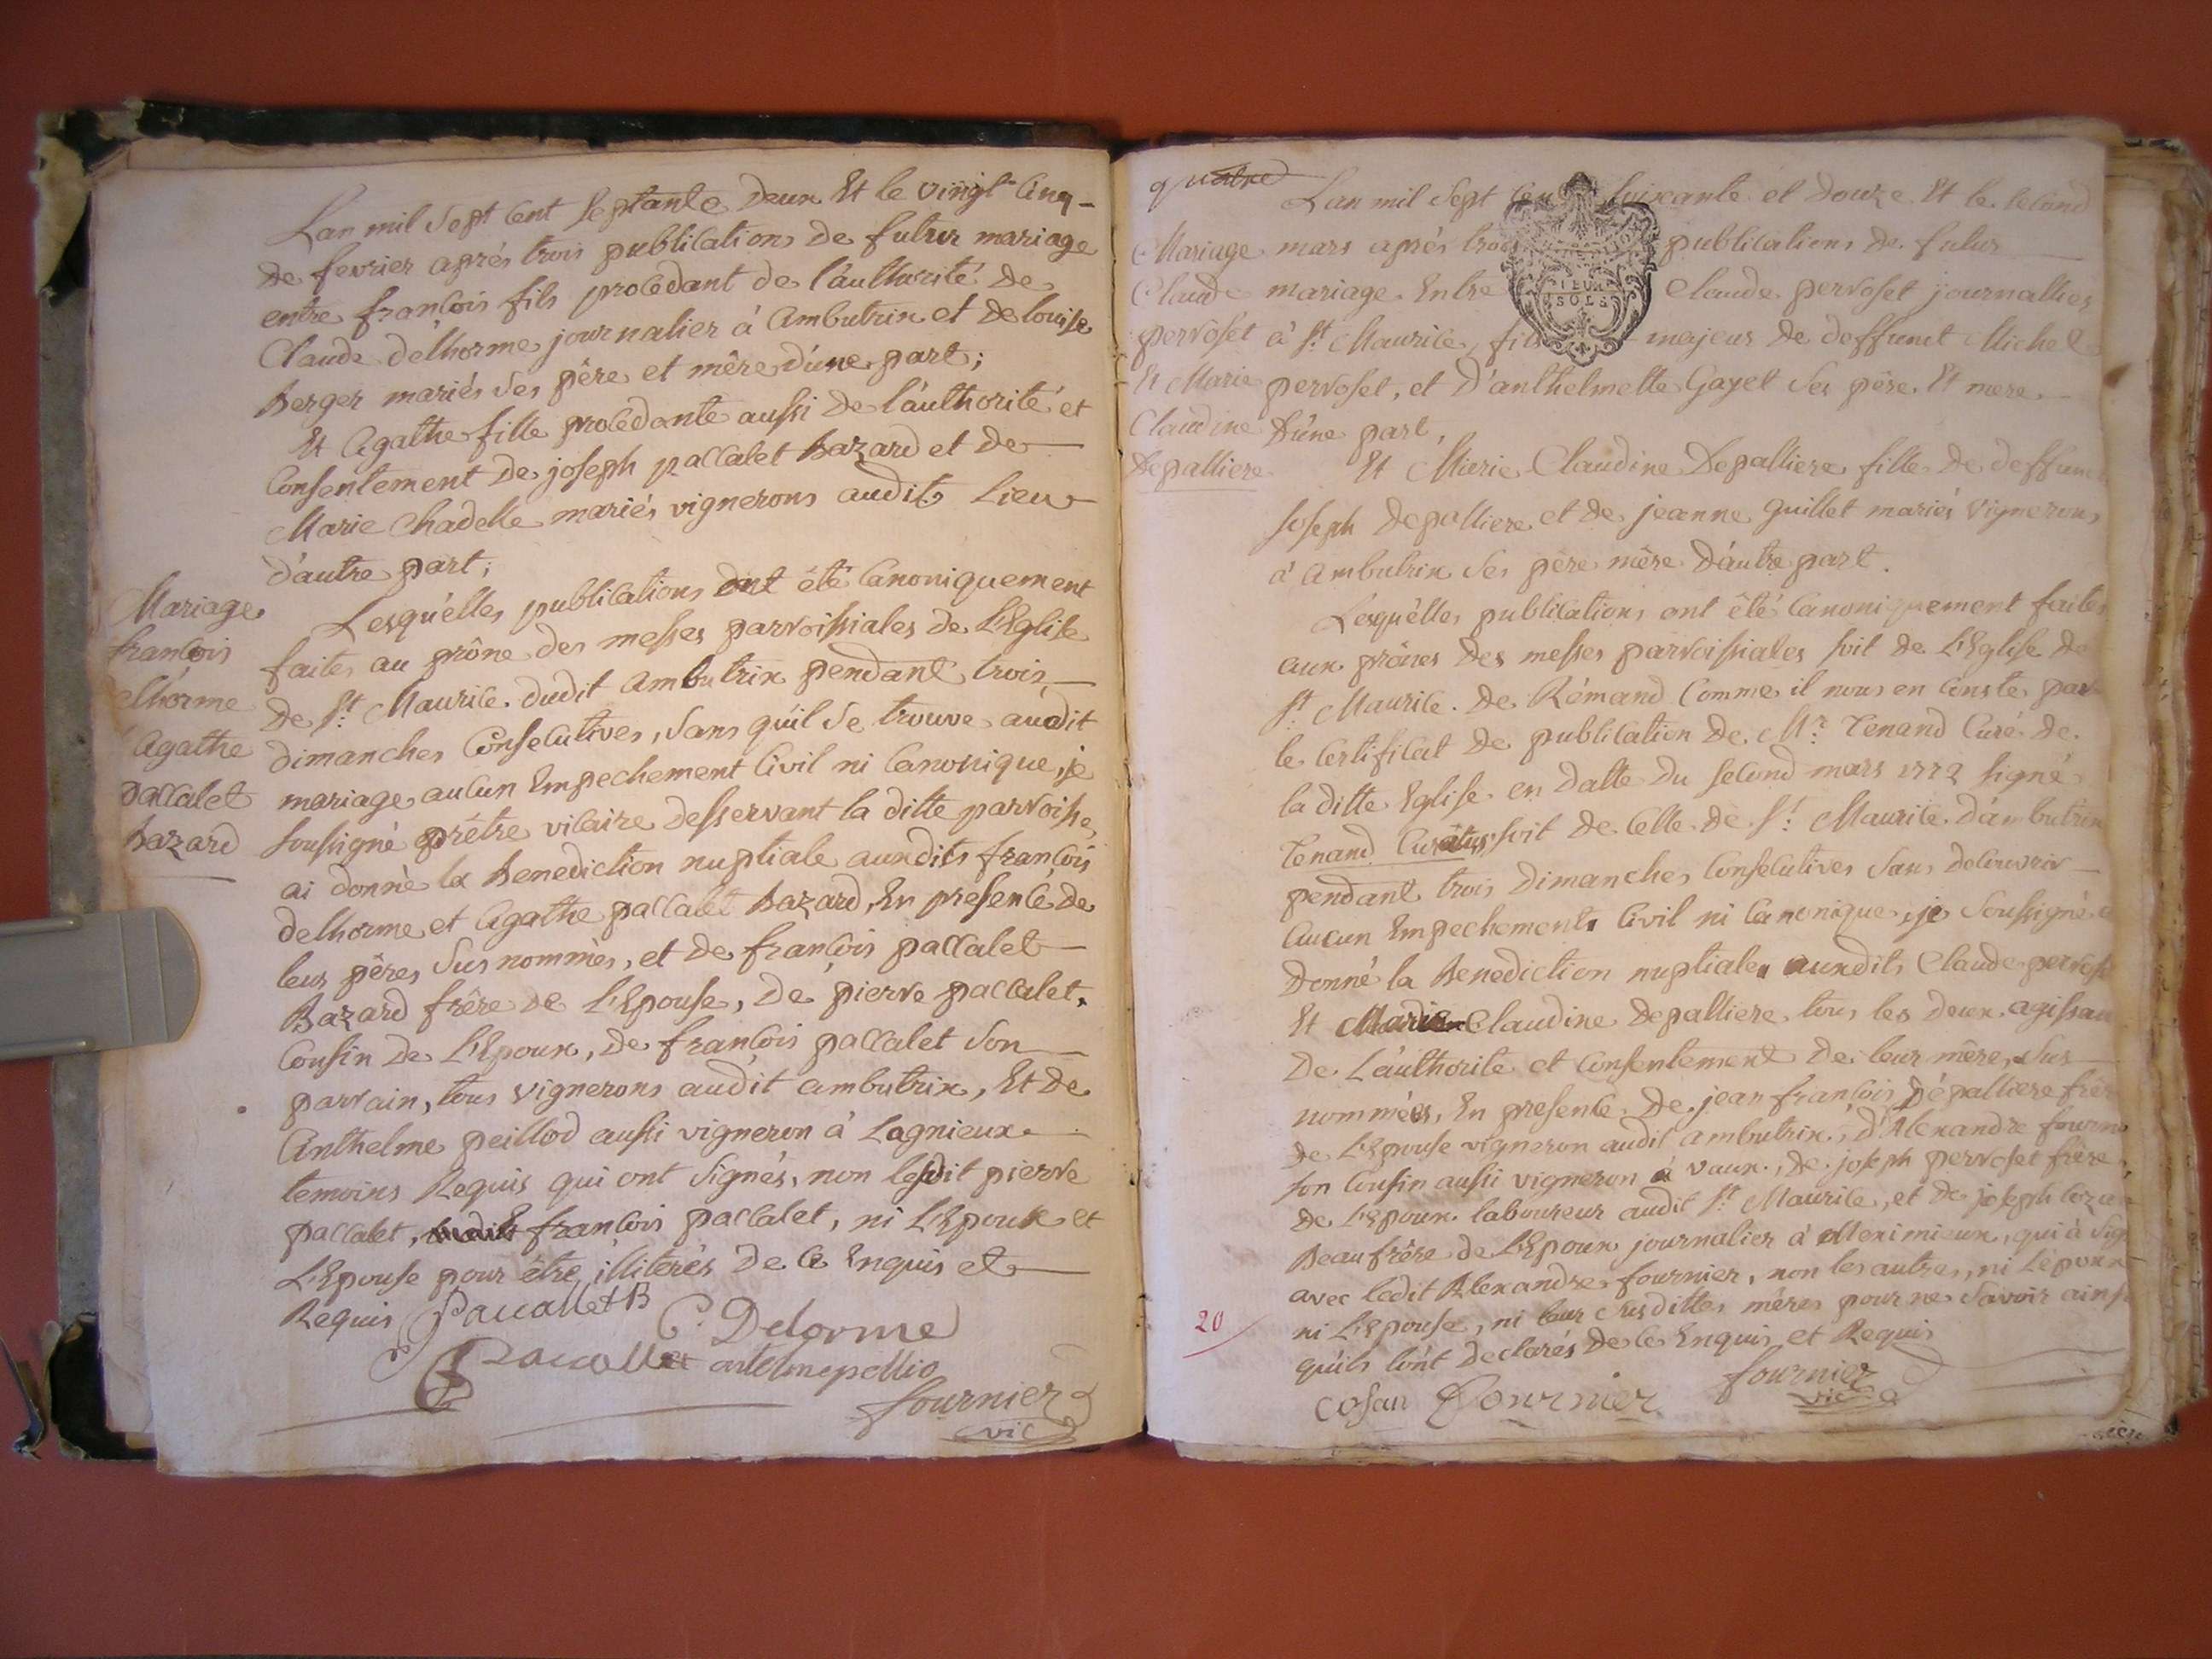 Lan mil Sept Cent Septante Deux Et le vingt Cinq
De fevrier aprés trois publications De futur mariage
entre francois fils procedant de l'authorité De
Claude delhorme journalier à Ambutrix et de louise
Berger mariés ses père et mère d'une part;
Et Agathe fille procedante aussi de l'authorité et
Consentement De joseph paccalet Bazard et de
Marie Chadelle mariés vignerons audit Lieu
d'autre part;
Mariage
francois
elhorme
Agathe
paccalet
bazard
Lesquelles publications ont été Canoniquement
faites au prône des messes parroissiales de L'Eglise
De St. Maurice dudit Ambutrix pendant trois
dimanches Consecutives, sans qu'il se trouve audit
mariage aucun Empechement Civil ni Canonique, je
soussigné prêtre vicaire desservant la ditte parroisse
ai donné la Benediction nuptiale auxdits francois
delhorme et Agathe paccalet Bazard, En presence de
leur pères sus nommés, et de francois paccalet
Bazard frère de L'Epouse, De pierre paccalet
Cousin de L'Epoux, de francois paccalet son
parrain, tous vignerons audit ambutrix, Et de
Anthelme peillod aussi vigneron à Lagnieux
temoins Requis qui ont signés, non lesdit pierre
paccalet, francois paccalet, ni L'Epoux et
L'Epouse pour être illiterés De Ce Enquis et
Requis Paucallet B
C. Delorme
Paccallet antelme pellio
fournier
vic
quatre
Lan mil Sept Cent Soixante et Douze Et le second
Mariage
Claude
perroset
Et Marie
Claudine
Depalliere
mars après trois publications de futur
mariage Entre Claude perroset journallier
à St. Maurice, fils majeur de deffunct Michel
perroset, et D'anthelmette Gayet ses père Et mere
D'une part,
Et Marie Claudine Depalliere fille de deffunct
Joseph Depalliere et de jeanne Guillet mariés vignerons
à Ambutrix ses père mère d'autre part.
Lesquelles publications ont été Canoniquement faites
aux prônes Des messes parroissiales soit de L'Eglise de
St. Maurice De Rémand Comme il nous en Conste par
le Certificat De publication De Mr. Tenand Curé de
la ditte Eglise en datte du second mars 1772 signé
Tenand Curatus soit de Celle de St. Maurice d'ambutrix
pendant trois dimanches Consecutives sans decouvrir
aucun Empechement Civil ni Canonique, je soussigné
Donné la Benediction nuptiale auxdits Claude perroset
Et Marie Claudine Depalliere tous les deux agissan
De L'authorité et Consentement de leur mère, sus
nommées, En presence De jean francois Dépalliere frèr
De L'Epouse vigneron audit ambutrix, d'Alexandre fourn
son Cousin aussi vigneron à vaux, De joseph perroset frère
De L'Epoux laboureur audit St. Maurice, et de joseph
Beaufrère de L'Epoux journalier à Meximieux, qui à sign
avec ledit Alexandre fournier, non les autres, ni L'époux
ni L'Epouse, ni leur susdittes mères pour ne savoir ainsi
qu'ils l'ont declarés De Ce Enquis et Requis
20
cosan Fournier fournier
vic